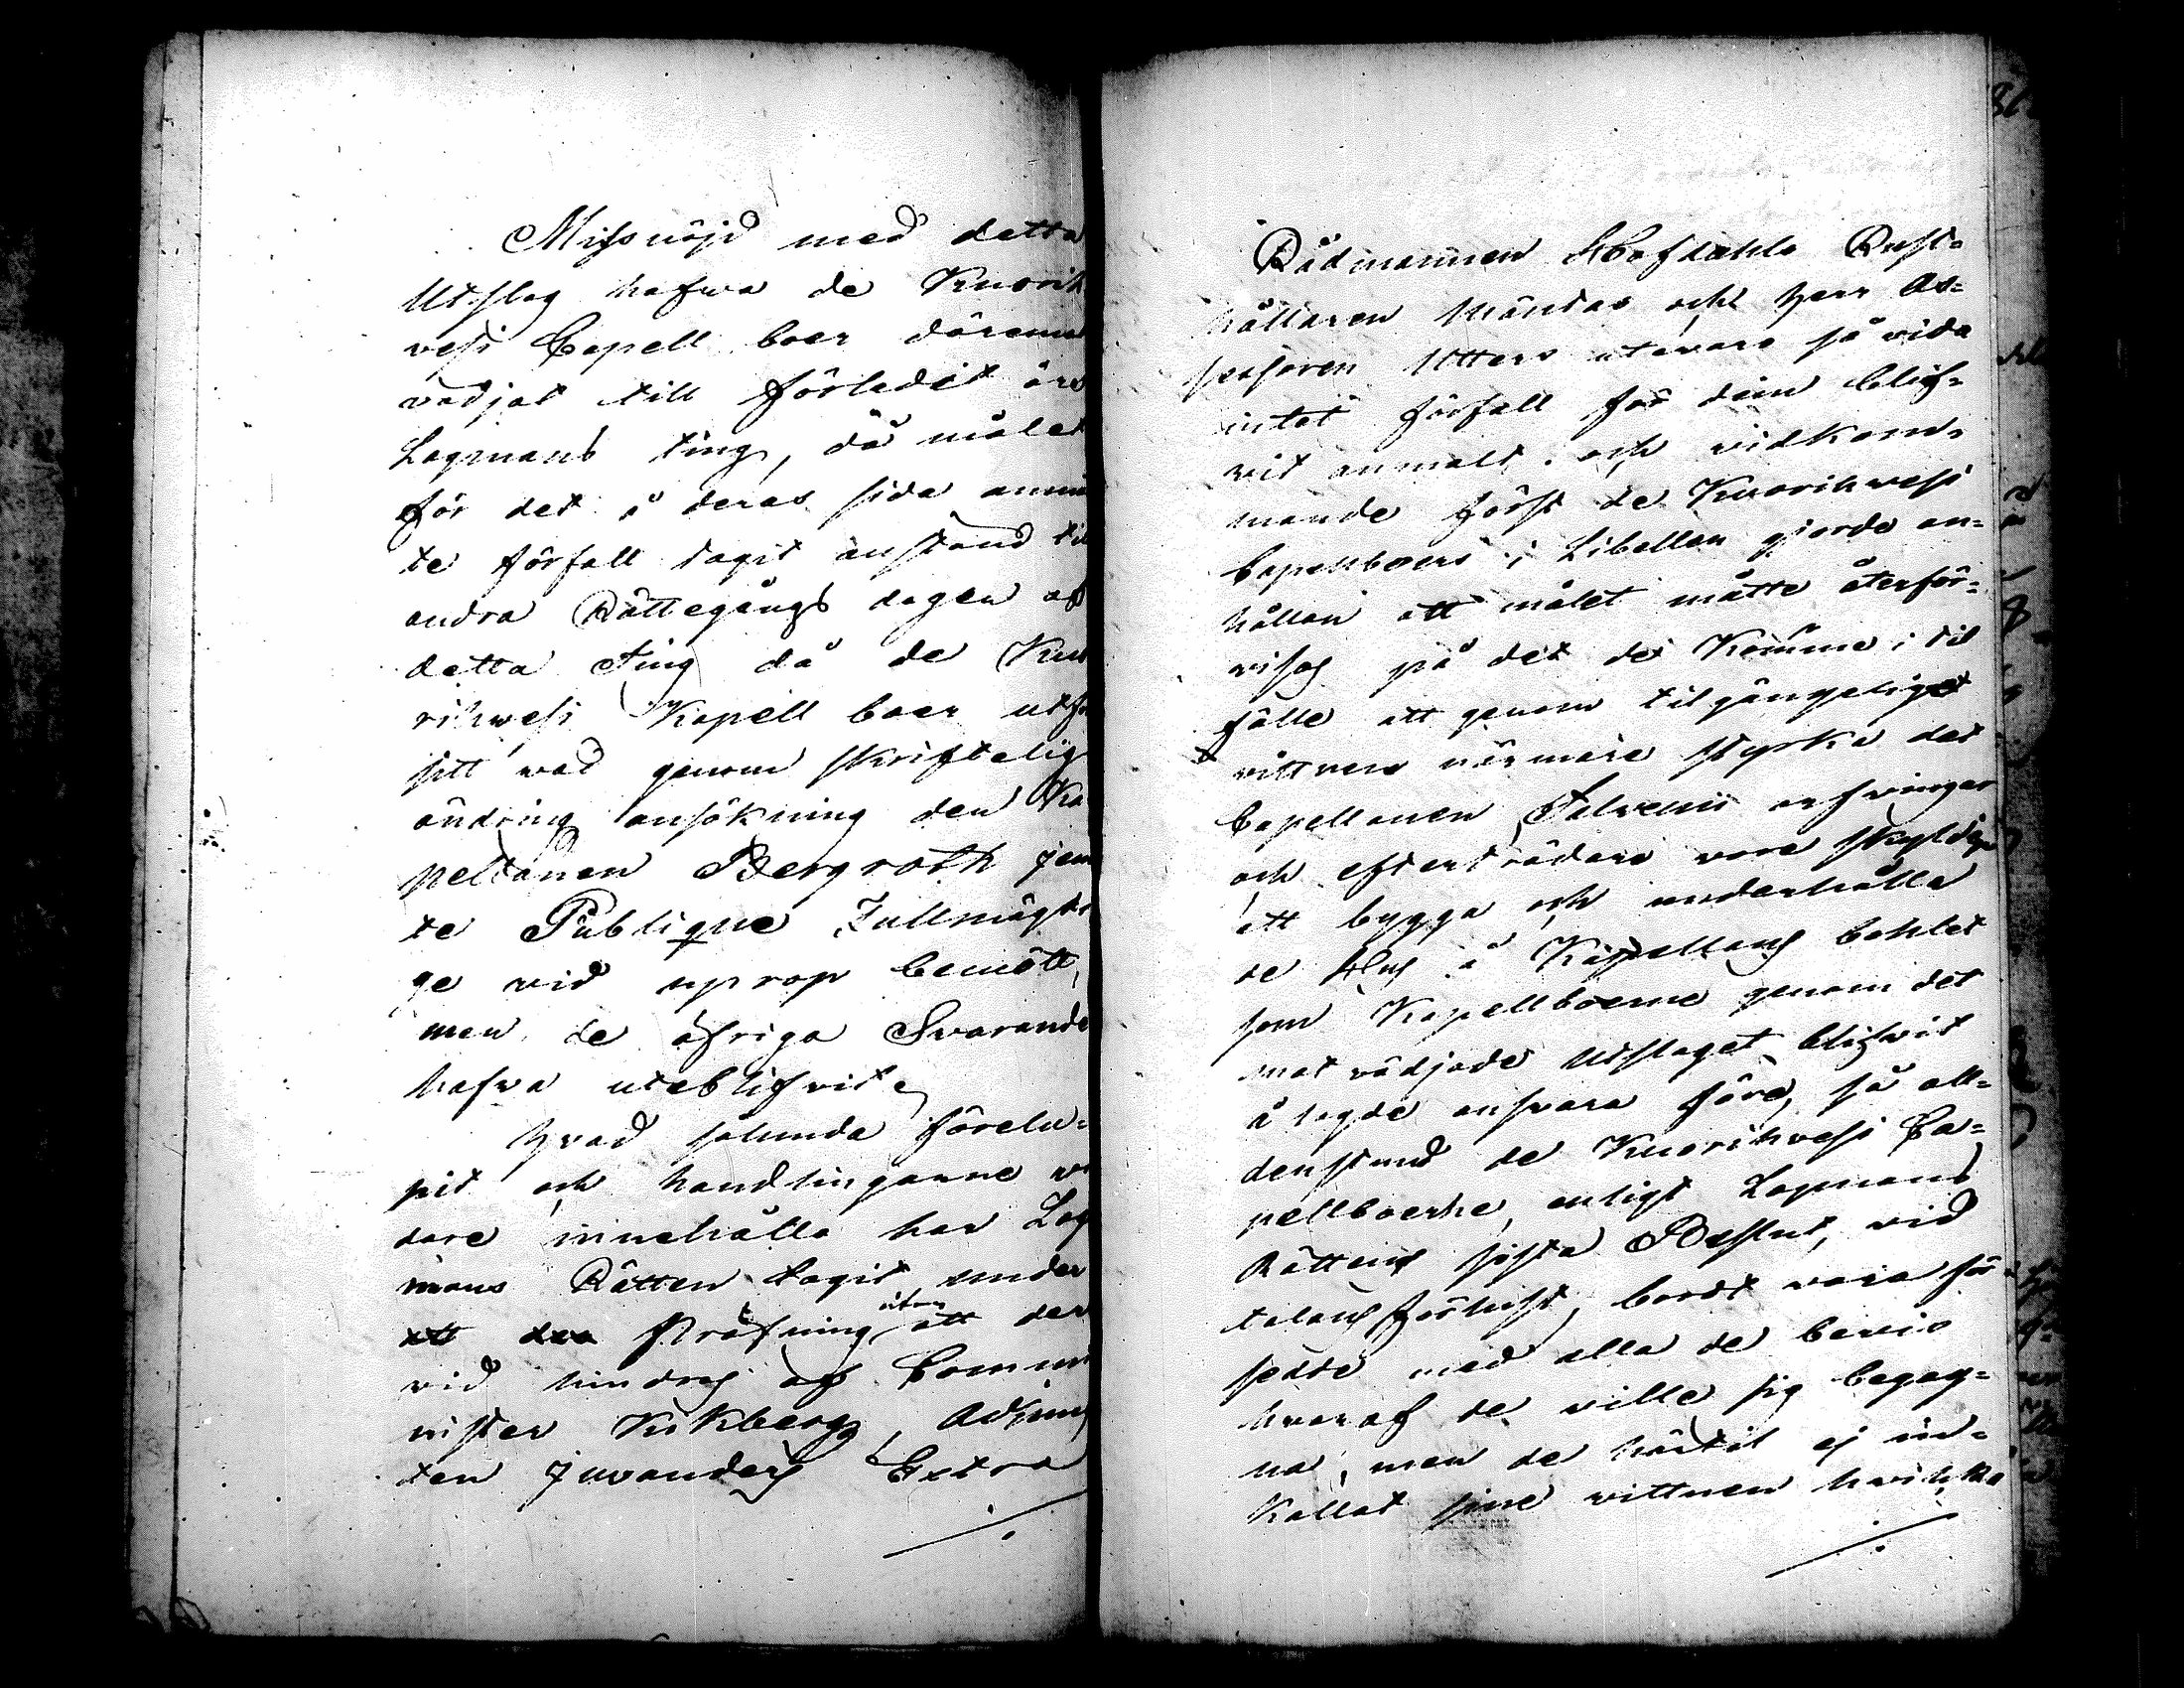 Missnöjd med detta
Utslag hafwa de Kuorih
vesi Capell boer däremo
vädjat till förledit års
Lagmans ting, då målet
för det å deras sida anmä
te förfall tagit anstånd til
andra Rättegångs dagen af
detta Ting då de Kuo
rihwesi Kapell boer utfö
sitt wad genom skriftelig
ändring ansökning den Ka
pellanen Bergroth jem
te Publique Fullmägti
ge vid uprop bemött,
men de öfriga Svarande
hafwa uteblifvit.
Hvad sålunda förelu=
pit och handlingarne wi
dare innehålla har Lag
mans Rätten tagit under
pröfning utan att der
vid hindras af Commi
nister Kikberg, Adjunc
ten Juvanders Extra
./.
Rådmannen Hofdahls Rust=
hållaren Mäntas och Herr As=
sessoren Utters utevaro så vida
intet förfall för dem blif=
vit anmält. och vidkom=
mande först de Kuorihwesi
Capellboers i Libellen gjorde an=
hållan att målet måtte återför=
visas på det de Komme i til
fälle att genom tilgängeligt
vittnen närmare styrka det
Capellanen Salvenii arfwingar
och efterträdare vore skyldige
att bygga och underhålla
de Hus å Kapellans bohlet
som Kapellboerne genom det
mot vädjade Utslaget blifwit
å lagde ansvara före, så all=
denstund de Kuorihvesi Ca=
pellboerne, enligt Lagmans
Rättens sista Beslut, vid
talans förlust, bordt vara för=
sedde med alla de bevis
hvaraf de ville sig begag=
na, men de härtil ej in=
kallat sine vittnen hvilka
./.